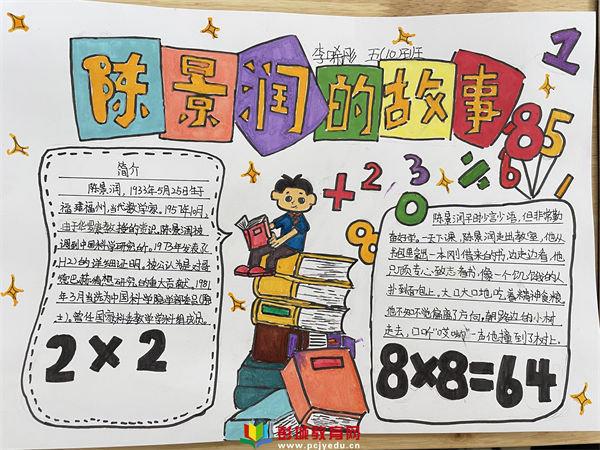 李晞彤 五(10)班
陈景润的故事
1
85
6
+
2
3
%
0
简介
陈景润,1933年5月25日生于
福建福州,当代数学家。1957年10月,
由于华罗庚教授的赏识,陈景润被
调到中国科学研究所。1973年发表了
(1+2)的详细证明,被公认为是对哥
德巴赫猜想研究的重大贡献。1981
年3月当选为中国科学院学部委员(院
士)。曾任国家科委数学学科组成员。
2×2
陈景润平时少言少语,但非常勤
奋好学。一天下课,陈景润走出教室,他从
书包里拿出一本刚借来的书,边走边看,他
只顾专心致志看书,像一个饥饿的人
扑到面包上,大口大地吃着精神食粮。
他不知不觉偏离了方向,朝路边的小树
走去,口听“哎哟”一声他撞到了树上。
8×8=64
彭城教育网
www.pcjyedu.cn